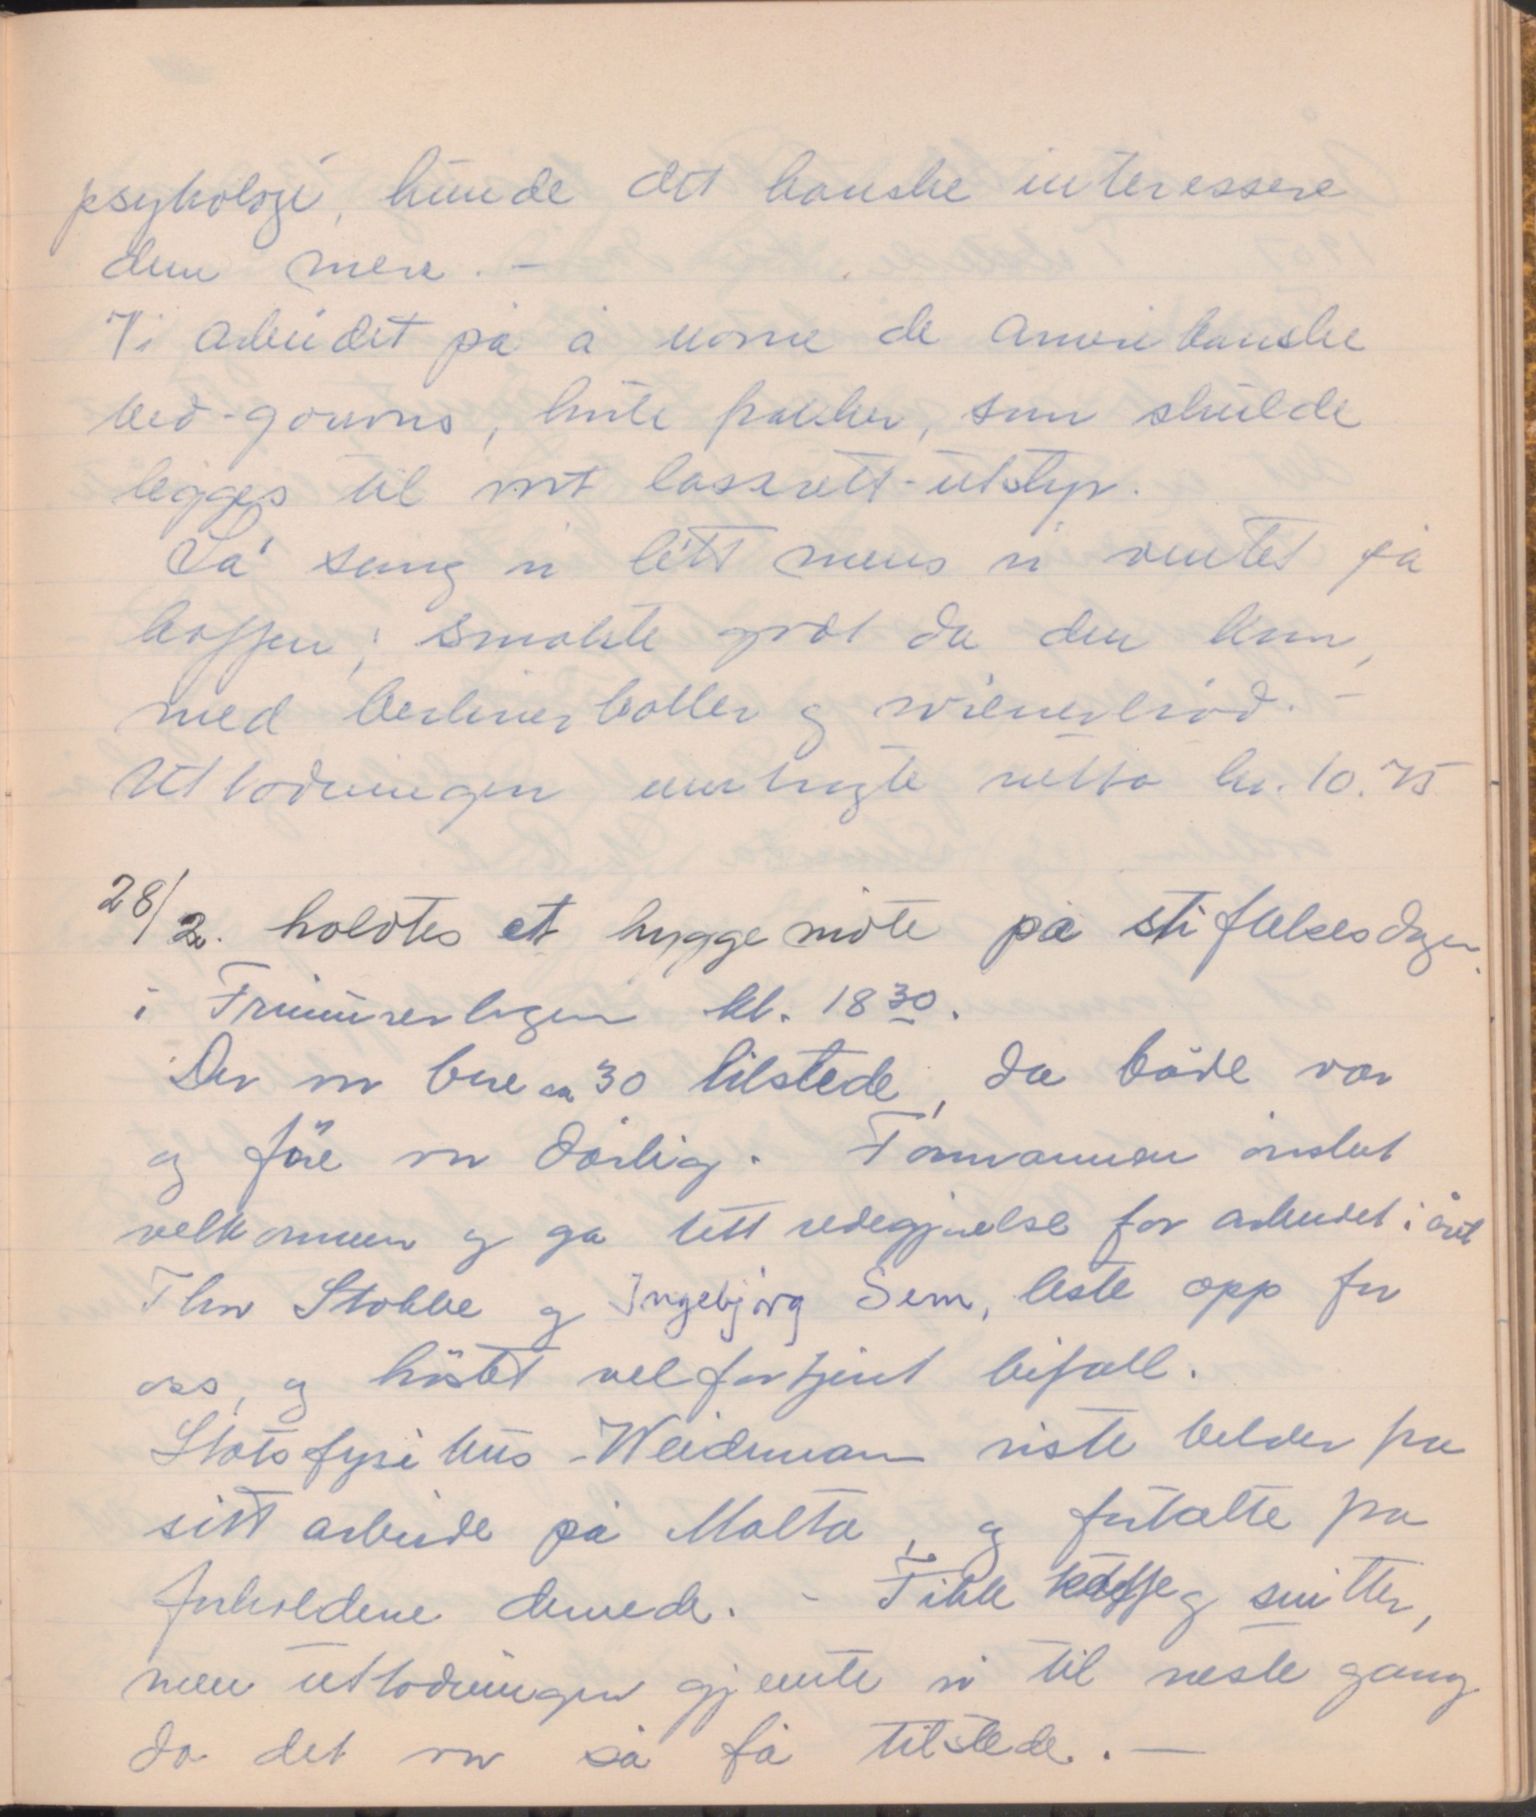 psykologi, kunde det kanske interessere
dem mere. –
Vi arbeidet på å merke de amerikanske
bed-gowns, hvite frakker, som skulde
legges til vort lasarett-utstyr.
Så sang vi litt mens vi ventet på
kaffen; smakte godt da den kom,
med berlinerboller og wienerbröd. –
Utlodningen innbragte netto kr. 10.75
28/2. holdtes et hyggemöte på stiftelsesdagen
i Frimurerlogen kl. 18 30.
Der var bare ca 30 tilstede, da både vær
og före var dårlig. Formannen önsket
velkommen og ga litt redegjörelse for arbeidet i året
Thor Stokke og Ingebjörg Sem, leste opp for
oss, og höstet velfortjent bifall.
Statsfysikus Weideman viste bilder fra
sitt arbeide på Malta, og fortalte fra
forholdene dernede. – Fikk kaffe og snitter,
men utlodningen gjemte vi til neste gang
da det var så få tilstede. —